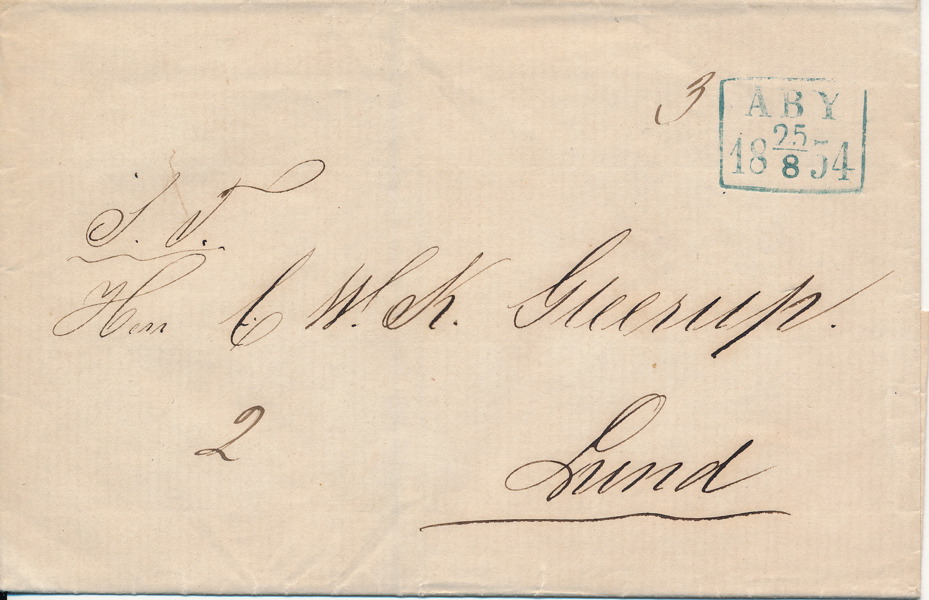 3
ABY
18 25/8 54
S. T.
Herr C W. K. Gleerup.
2
Lund